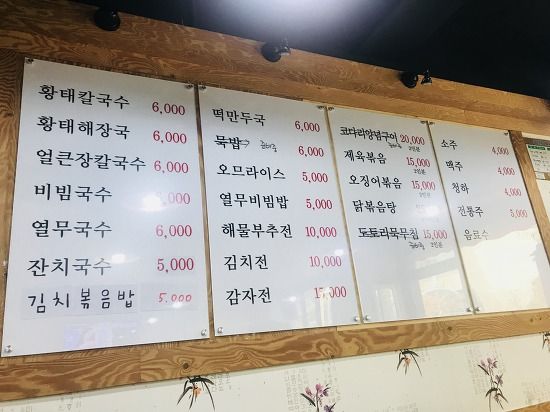 황태칼국수 6,000
황태해장국 6,000
얼큰장칼국수 6,000
비빔국수 6,000
열무국수 6,000
잔치국수 5,000
김치볶음밥 5,000
떡만두국 6,000
묵밥 6,000
오므라이스 5,000
열무비빔밥 5,000
해물부추전 10,000
김치전 10,000
감자전
코다리양념구이 20,000
2인분
제육볶음 15,000
2인분
오징어볶음 15,000
2인분
닭볶음탕
도토리묵무침 15,000
2인분
소주 4,000
맥주 4,000
청하 4,000
전통주 5,000
음료수